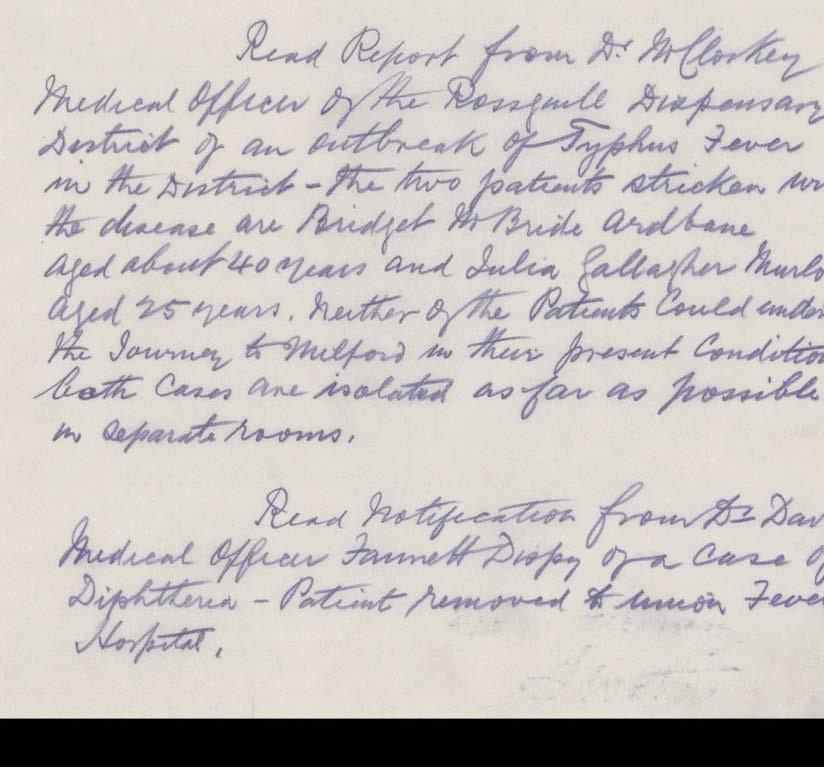 Read Report from Dr McCloskey
Medical Officer of the Rossguill Dispensary
District of an outbreak of Typhus Fever
in the District - The two patients stricken
the disease are Bridget McBride Ardbane
aged about 40 years and Julia Gallagher Murlo
aged 25 years. Neither of the Patients Could under
the Journey to Milford in their present Condition
both Cases are isolated as far as possible
in separate rooms.
Read Notification from Dr Dav
Medical Officer Fannett Dispy of a Case of
Diphtheria - Patient removed to union Fever
Hospital.